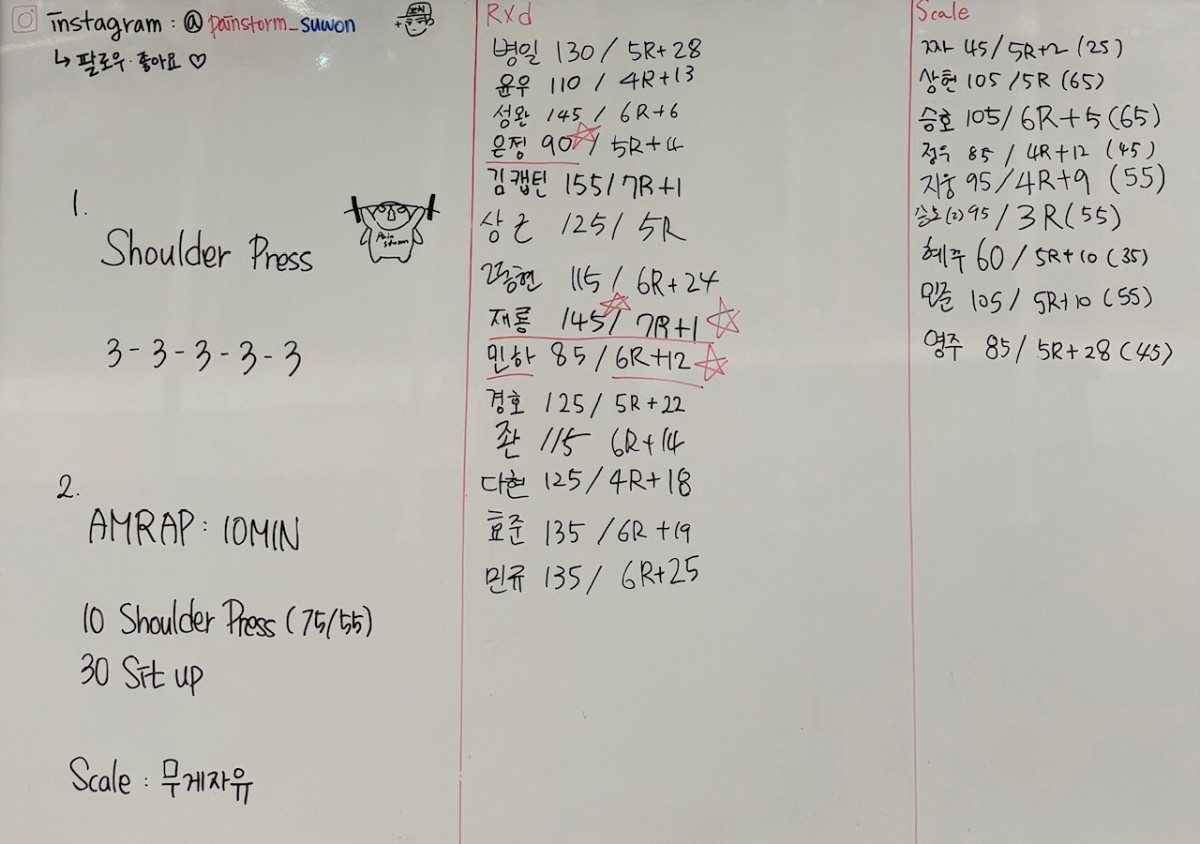 instagram : @painstorm_suwon
↳ 팔로우·좋아요 ♡
1.
Shoulder Press
Pain Storm
3-3-3-3-3
2.
AMRAP : 10MIN
10 Shoulder Press (75/55)
30 Sit up
Scale : 무게자유
Rxd
병일 130 / 5R+28
윤우 110 / 4R+13
성완 145 / 6R+6
은정 90 / 5R+4
김캡틴 155/7R+1
상근 125/ 5R
동현 115/ 6R+24
재룡 145/ 7R+1
민하 85/6R+12
경호 125/ 5R+22
좐 115 6R+14
다현 125/4R+18
효준 135 /6R+19
민규 135/ 6R+25
Scale
45/5R+2 (25)
상현 105/5R (65)
승호 105/6R+5(65)
정우 85 / 4R+12 (45)
지웅 95/4R+9 (55)
95/3R(55)
혜주 60/5R+10 (35)
민준 105/ 5R+10 (55)
영주 85/5R+28 (45)